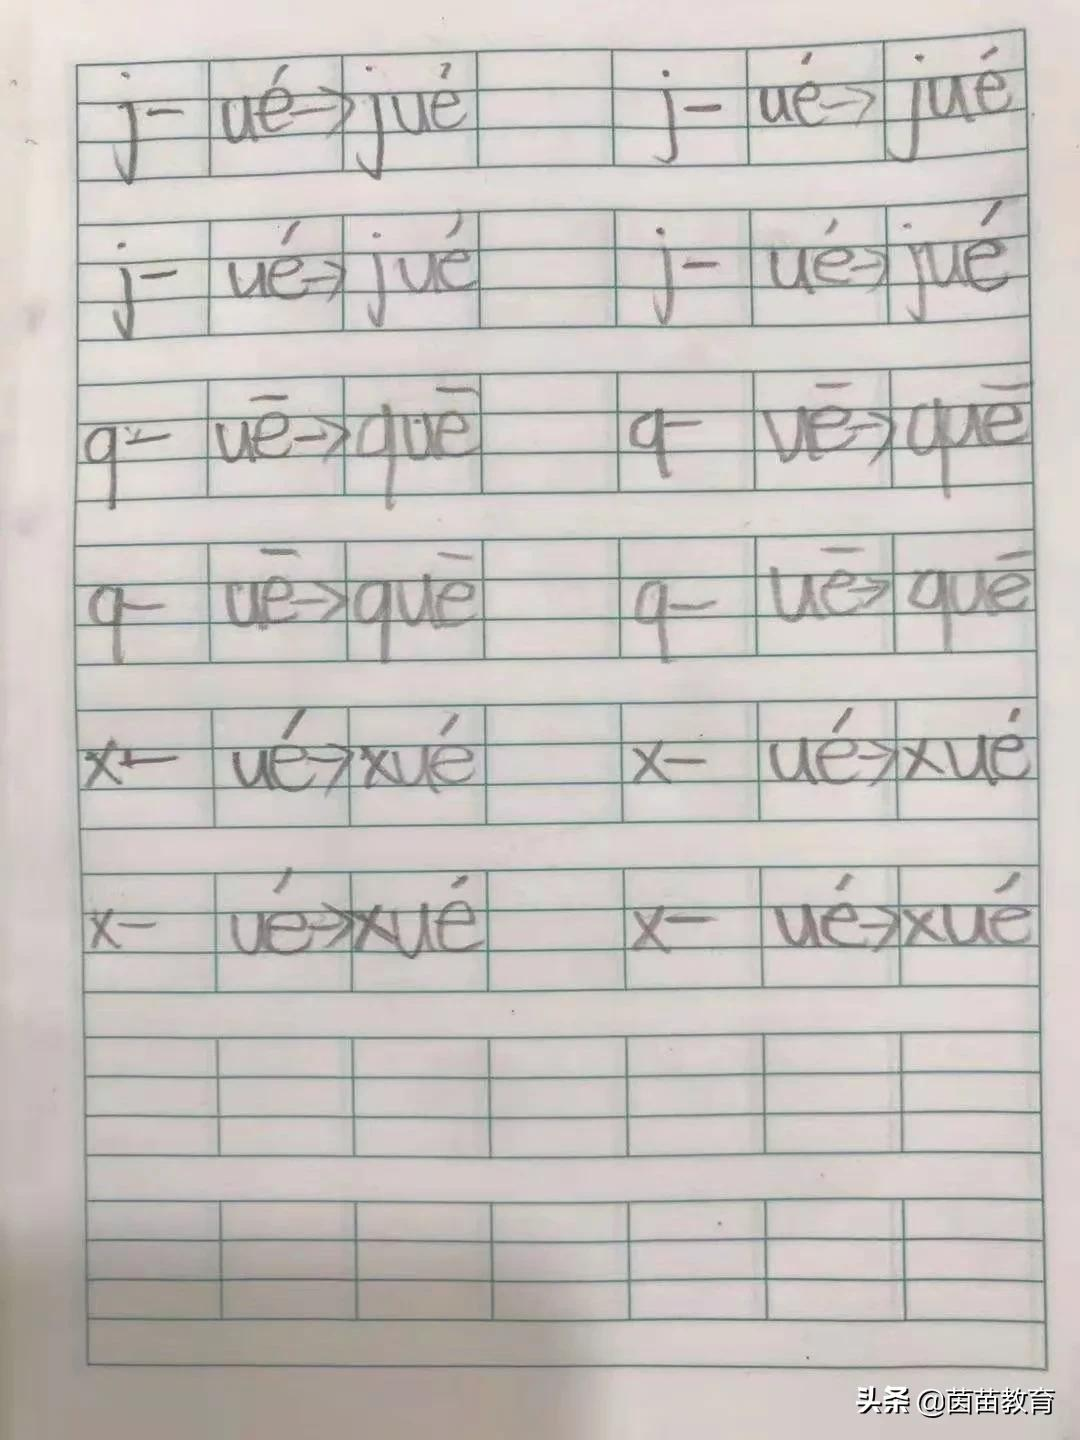 j- ué→jué j- ué→jué
j- ué→jué j- ué→jué
q- uē→quē q- uē→quē
q- uē→quē q- uē→quē
x- ué→xué x- ué→xué
x- ué→xué x- ué→xué
头条 @茵苗教育